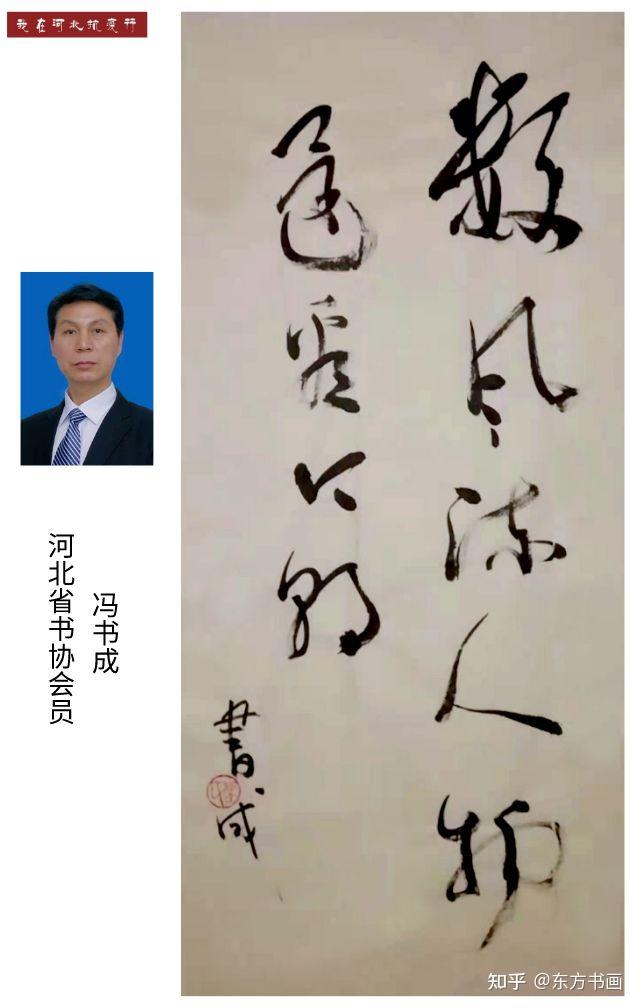 我在河北抗疫行
数风流人物
还看今朝
書成
冯书成
河北省书协会员
知乎 @东方书画